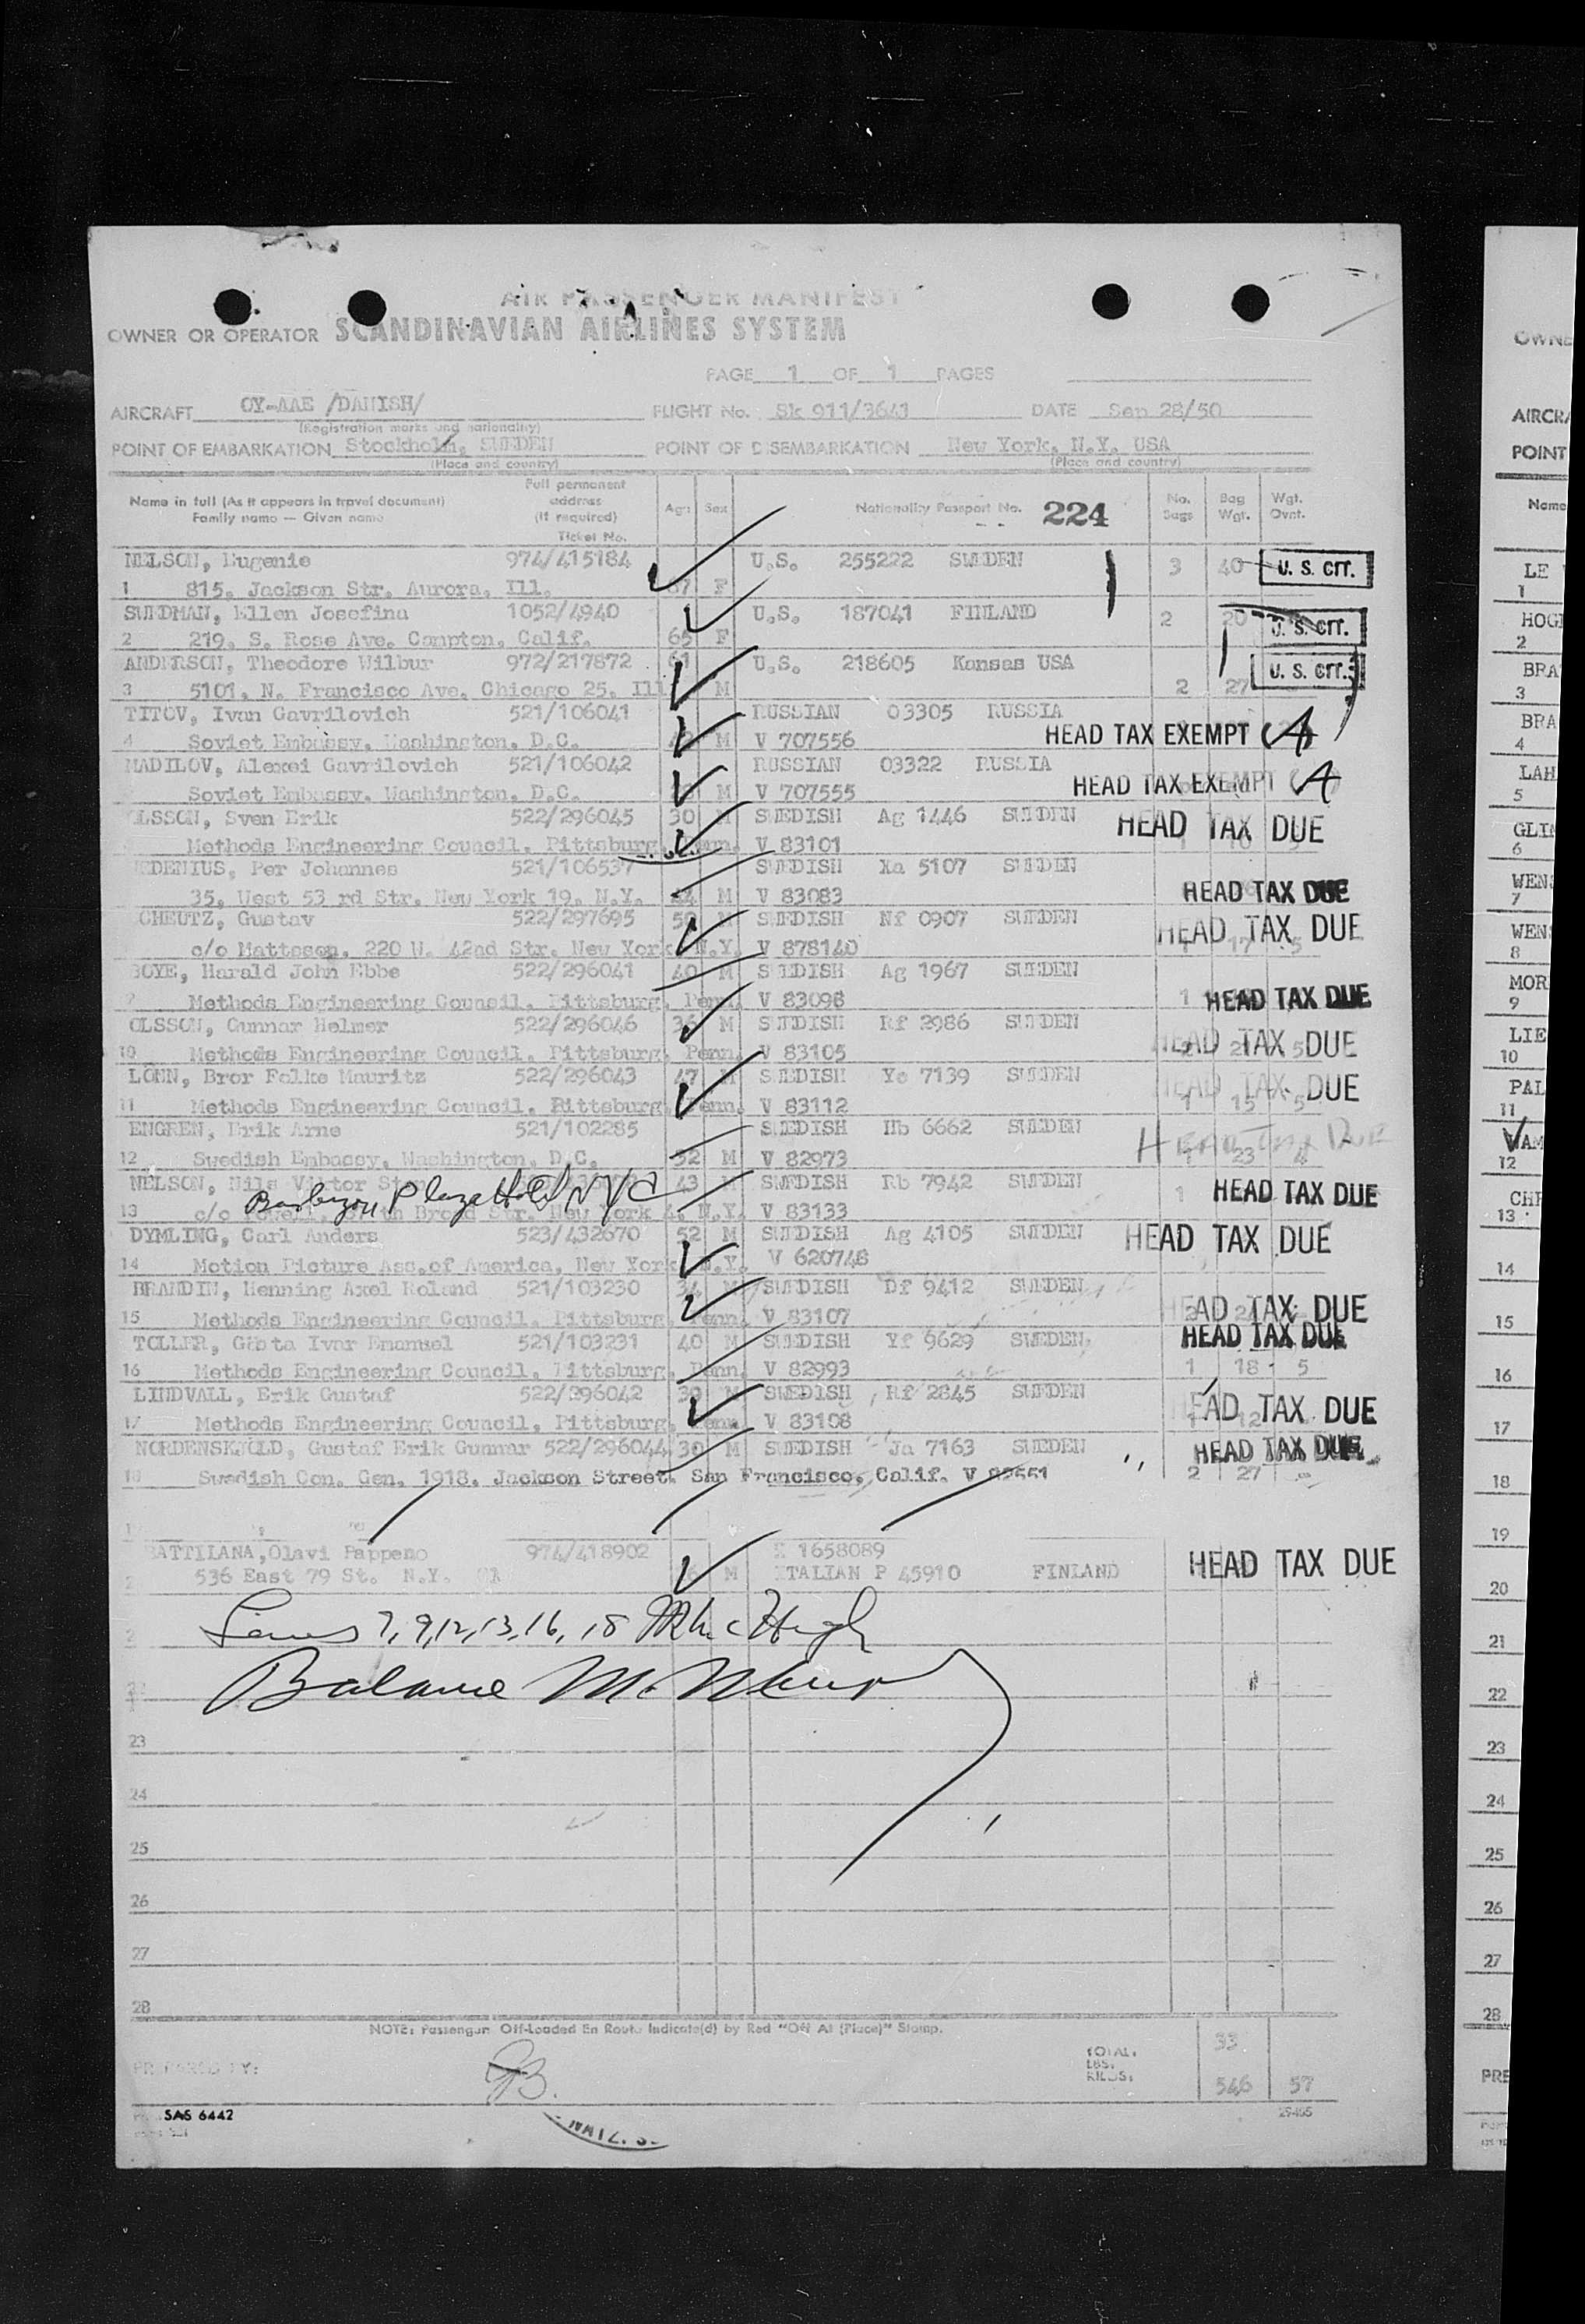 AIR PASSENGER MANIFEST
OWNER OR OPERATOR SCANDINAVIAN AIRLINES SYSTEM
PAGE 1 OF 1 PAGES
AIRCRAFT OY-AAE /DANISH/ FLIGHT No. Sk 911/3641 DATE Sep 28/50
(Registration marks and nationality)
POINT OF EMBARKATION Stockholm, SWEDEN POINT OF DISEMBARKATION New York, N.Y. USA
(Place and country) (Place and country)
Name in full (As it appears in travel document) Family name — Given name Full permanent address (If required) Ticket No. Age Sex Nationality Passport No. 224 No. Bags Bag Wgt. Wgt. Ovnt.
NELSON, Eugenie 974/415184 U.S. 255222 SWEDEN 3 40 U. S. CIT.
1 815, Jackson Str. Aurora, Ill. 67 F
SUNDMAN, Ellen Josefina 1052/4940 U.S. 187041 FINLAND 2 20 U. S. CIT.
2 219, S. Rose Ave. Compton, Calif. 65 F
ANDERSON, Theodore Wilbur 972/217872 61 U.S. 218605 Kansas USA U. S. CIT.
3 5101, N. Francisco Ave. Chicago 25, Ill M 2 27
TITOV, Ivan Gavrilovich 521/106041 RUSSIAN 03305 RUSSIA
4 Soviet Embassy, Washington, D.C. M V 707556 HEAD TAX EXEMPT A
MADILOV, Alexei Gavrilovich 521/106042 RUSSIAN 03322 RUSSIA
Soviet Embassy, Washington, D.C. M V 707555 HEAD TAX EXEMPT A
OLSSON, Sven Erik 522/296045 30 M SWEDISH Ag 1446 SWEDEN HEAD TAX DUE
Methods Engineering Council, Pittsburg, Penn. V 83101
EDENIUS, Per Johannes 521/106537 SWEDISH Xa 5107 SWEDEN
35, West 53 rd Str. New York 19, N.Y. 44 M V 83083 HEAD TAX DUE
SCHEUTZ, Gustav 522/297695 50 M SWEDISH Nf 0907 SWEDEN HEAD TAX DUE
c/o Mattsson, 220 W. 42nd Str. New York N.Y. V 878140 17 5
BOYE, Harald John Ebbe 522/296041 40 M SWEDISH Ag 1967 SWEDEN
Methods Engineering Council, Pittsburg, Penn. V 83098 1 HEAD TAX DUE
OLSSON, Gunnar Helmer 522/296046 36 M SWEDISH Rf 2986 SWEDEN
10 Methods Engineering Council, Pittsburg, Penn. V 83105 HEAD TAX DUE
LÖNN, Bror Folke Mauritz 522/296043 47 M SWEDISH Ye 7139 SWEDEN HEAD TAX DUE
11 Methods Engineering Council, Pittsburg, Penn. V 83112 1 15 5
ENGREN, Erik Arne 521/102285 SWEDISH Hb 6662 SWEDEN Head Tax Due
12 Swedish Embassy, Washington, D.C. 32 M V 82973 1 23 4
NELSON, Nils Viktor 43 M SWEDISH Rb 7942 SWEDEN 1 HEAD TAX DUE
Barbizon Plaza Hotel NYC
13 c/o Broad Str. New York 4, N.Y. V 83133
DYMLING, Carl Anders 523/432670 52 M SWEDISH Ag 4105 SWEDEN HEAD TAX DUE
14 Motion Picture Ass.of America, New York N.Y. V 620748
BRANDIN, Henning Axel Roland 521/103230 34 M SWEDISH Df 9412 SWEDEN
15 Methods Engineering Council, Pittsburg, Penn. V 83107 HEAD TAX DUE
TOLLER, Gösta Ivar Emanuel 521/103231 40 M SWEDISH Yf 9629 SWEDEN HEAD TAX DUE
16 Methods Engineering Council, Pittsburg, Penn. V 82993 1 18 5
LINDVALL, Erik Gustaf 522/296042 39 M SWEDISH Rf 2845 SWEDEN HEAD TAX DUE
17 Methods Engineering Council, Pittsburg, Penn. V 83108
NORDENSKJÖLD, Gustaf Erik Gunnar 522/296044 30 M SWEDISH Ja 7163 SWEDEN HEAD TAX DUE
18 Swedish Con. Gen. 1918, Jackson Street, San Francisco, Calif. V 82551 2 27
BATTILANA,Olavi Pappeno 974/418902 1658089
536 East 79 St. N.Y. M ITALIAN P 45910 FINLAND HEAD TAX DUE
Lines 7, 9, 12, 13, 16, 18 McHugh
Balance
22
23
24
25
26
27
28
NOTE: Passenger Off-Loaded En Route Indicate(d) by Red "Off At (Place)" Stamp.
PREPARED BY: TOTAL: 33
LBS.
KILOS: 546 57
SAS 6442 29465
OWNE
AIRCRA
POINT
Name
LE
1
HOGI
2
BRA
3
BRA
4
LAH
5
GLI
6
WEN
7
WEN
8
MOR
9
LIE
10
PAL
11
12
CHR
13
14
15
16
17
18
19
20
21
22
23
24
25
26
27
28
PRE